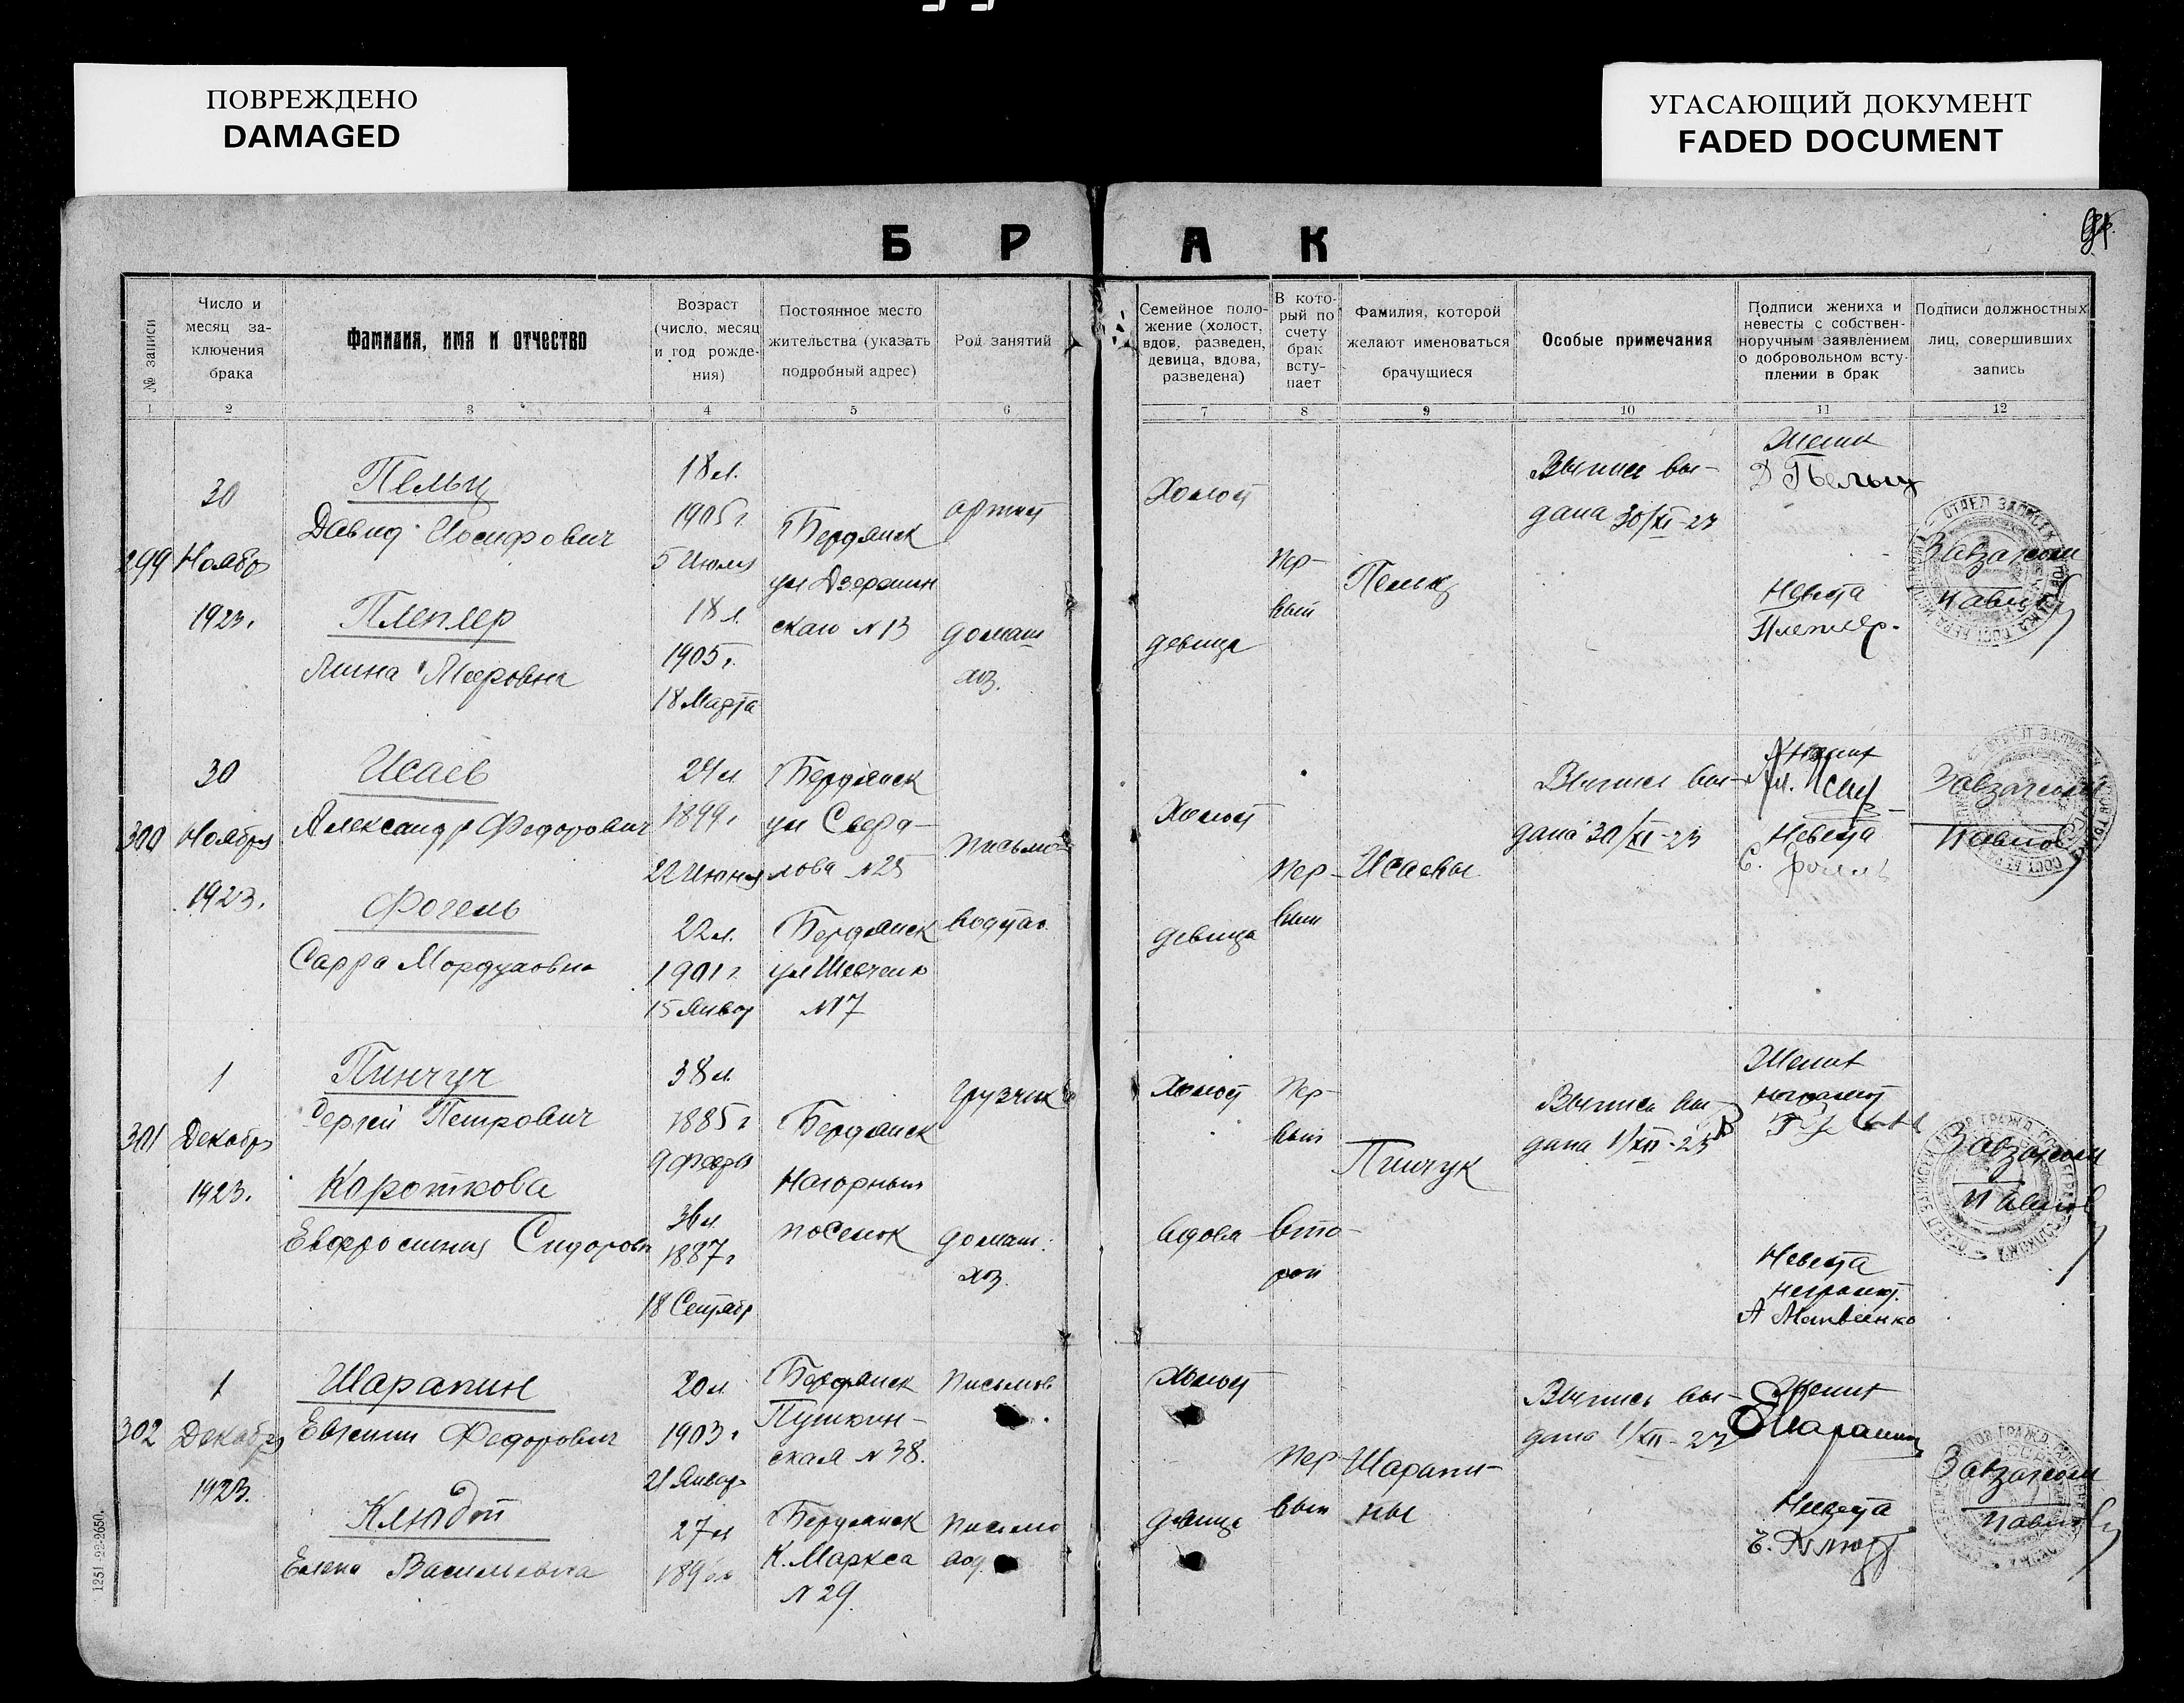 ПОВРЕЖДЕНО
DAMAGED
УГАСАЮЩИЙ ДОКУМЕНТ
FADED DOCUMENT
Б Р А К
№ записи
Число и
месяц за-
ключения
брака
Фамилия, имя и отчество
Возраст
(число, месяц
и год рожде-
ния)
Постоянное место
жительства (указать
подробный адрес)
Род занятий
Семейное поло-
жение (холост,
вдов, разведен,
девица, вдова,
разведена)
В кото-
рый по
счету
брак
всту-
пает
Фамилия, которой
желают именоваться
брачущиеся
Особые примечания
Подписи жениха и
невесты с собствен-
норучным заявлением
о добровольном всту-
плении в брак
Подписи должностных
лиц, совершивших
запись
1 2 3 4 5 6 7 8 9 10 11 12
299
30
Ноябр
1923.
Пельц
Давид Иосифович
Плеплер
Мееровна
18 л.
1905 г.
5 Июля
18 л.
1905 г.
18 Марта
Бердянск
ул Дзержин
скаго N 13
артист
домаш
хоз.
Холост
девица
пер-
вый
Пельц
Выписка вы-
дана 30/XI-23
Жених
Д Пельц
Невеста
Плеплер.
Завзагсом
Павлов
300
30
Ноября
1923.
Исаев
Александр Федорович
Фогель
Сарра Мордуховна
24 л
1899 г
22 Июня
22 л.
1901 г.
15 Январ
Бердянск
ул Сверд-
лова N 25
Бердянск
ул Шевченко
N 7
письмо-
водит.
Холост
девица
пер-
вый
Исаевы
Выписка вы-
дана 30/XI-23
Жених
Невеста
С. Фогель
Завзагсом
Павлов
301
1
Декабр
1923.
Пинчук
Сергей Петрович
Короткова
Евфросиния Сидоровн
38 л.
1885 г
9 Февр
36 л.
1887 г
18 Сентябр
Бердянск
Нагорный
поселок
грузчик
домаш.
хоз.
Холост
вдова
пер-
вый
вто-
рой
Пинчук
Выписка вы-
дана 1/XII-23
Жених
неграмот
Невеста
неграмот.
А Матвеенко
Завзагсом
Павлов
302
1
Декабр
1923.
Шарапин
Евгений Федорович
Клюдт
Елена Васильевна
20 л.
1903 г
21 Январ
27 л
Бердянск
Пушкин-
ская N 38.
Бердянск
К. Маркса
N 29.
письмов
письмо
вод.
Холост
девица
пер
вый
Шарапи-
ны
Выпись вы-
дана 1/XII-23
Жених
Шарапин
Невеста
Е. Клюдт
Завзагсом
Павлов
1251-22-2650.